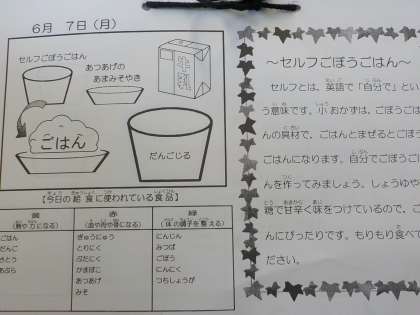 6月 7日（月）
セルフごぼうごはん
あつあげの
あまみそやき
ごはん
だんごじる
【今日の給食に使われている食品】
黄 赤 緑
(熱や力になる) (血や肉や骨になる) (体の調子を整える)
ごはん ぎゅうにゅう にんじん
だんご とりにく みつば
さとう ぶたにく ごぼう
あぶら かまぼこ にんにく
あつあげ つちしょうが
みそ
～セルフごぼうごはん～
セルフとは、英語で「自分で」とい
う意味です。小おかずは、ごぼうごは
んの具材で、ごはんとまぜるとごぼう
ごはんになります。自分でごぼうごは
んを作ってみましょう。しょうゆや
糖で甘辛く味をつけているので、ご
んにぴったりです。もりもり食べて
ださい。